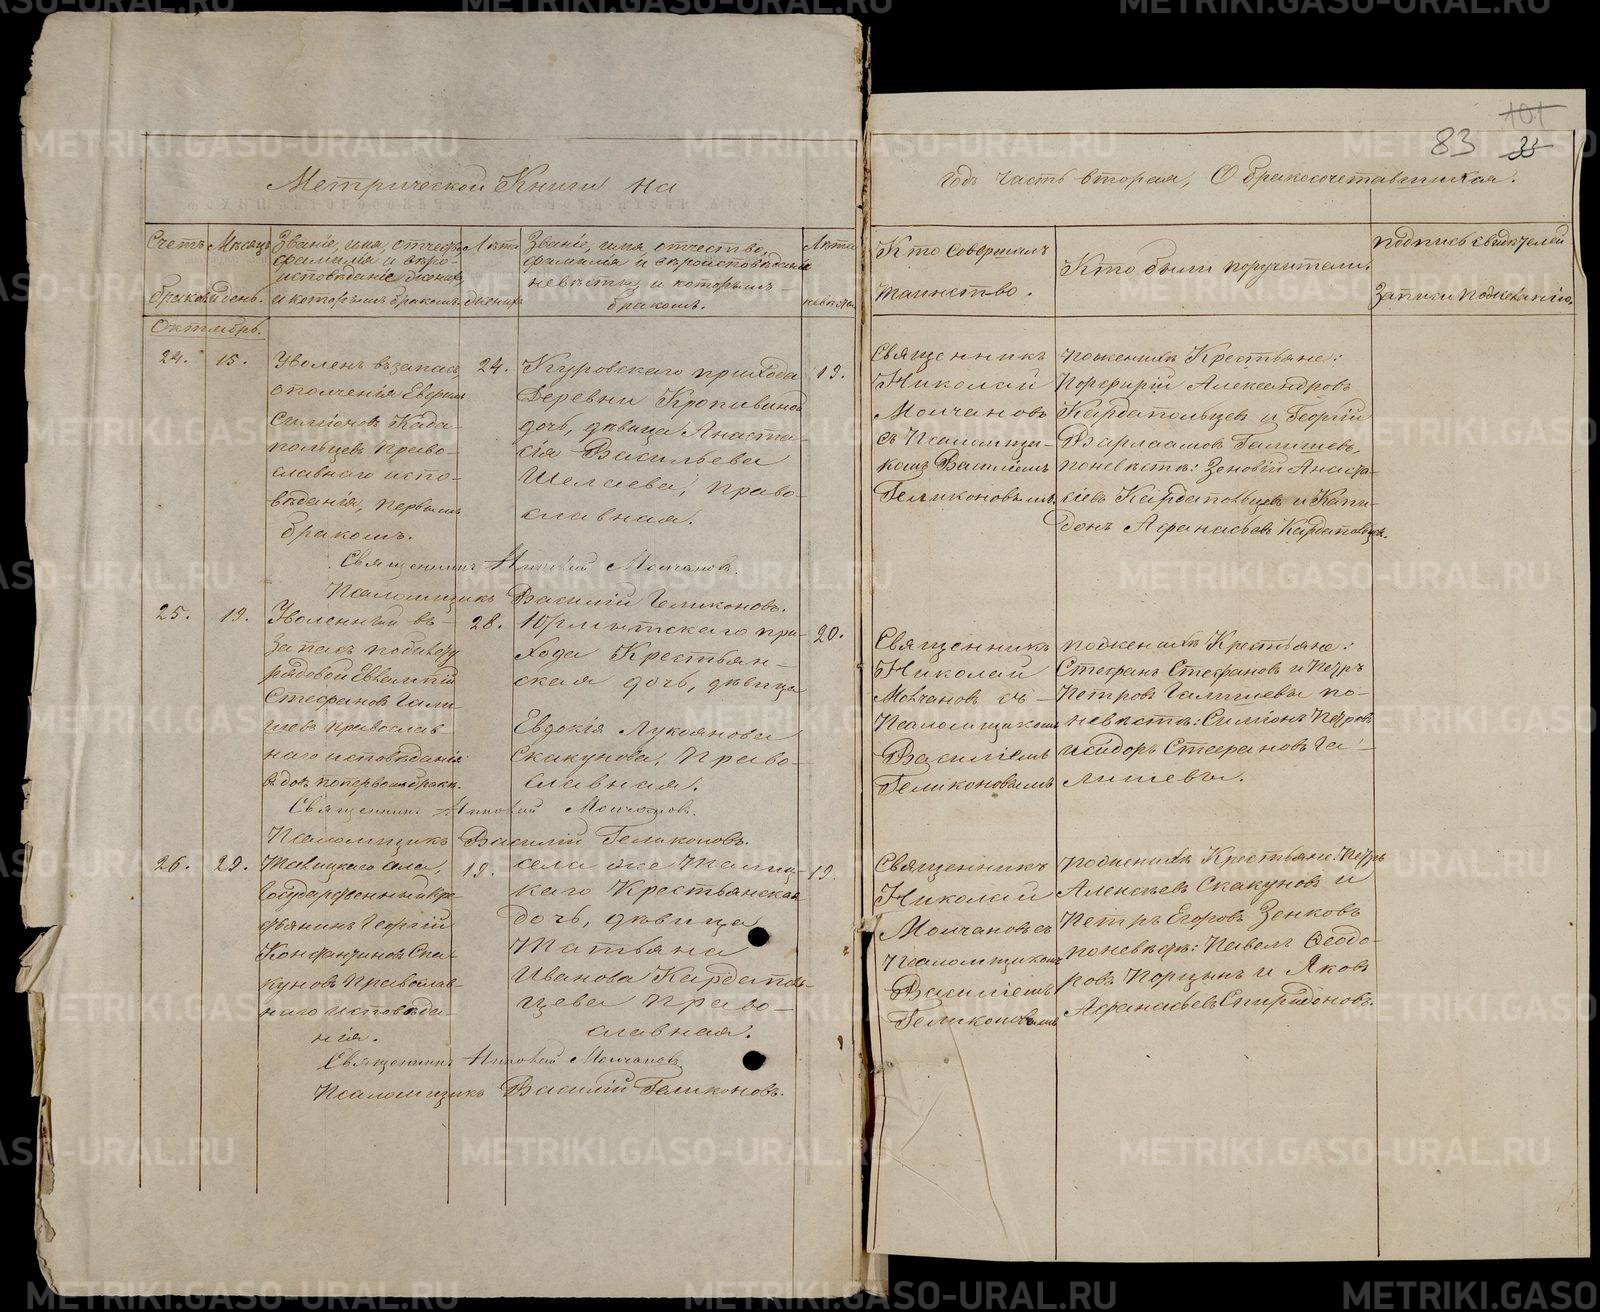 101
83 33
Метрической Книги на
годъ часть вторая, О бракосочетавшихся.
Счетъ браковъ
Мѣсяцъ и день.
Званіе, имя, отчество,
фамилія и вѣро-
исповѣданіе жениха,
и которымъ бракомъ.
Лѣта жениха
Званіе, имя, отчество,
фамилія и вѣроисповѣданіе
невѣсты, и которымъ
бракомъ.
Лѣта невѣсты
Кто совершалъ
таинство.
Кто были поручители.
Подпись свидѣтелей
записи по желанію.
Октябрь.
24.
15.
Уволен. въ запасъ
ополченія Евфим
Симіоновъ Карда-
польцевъ право-
славнаго испо-
вѣданія, первымъ
бракомъ.
24.
Куровскаго прихода
Деревни Кропивиной
дочь, дѣвица Анаста-
сія Васильева
Шелаева, право-
славная.
19.
Священникъ
Николай
Молчановъ
съ Псаломщи-
комъ Василіемъ
Геликоновымъ.
по женихѣ Крестьяне:
Порфирій Александровъ
Кардапольцев и Георгій
Варлаамовъ Галишевъ,
по невѣстѣ: Зеновій Анаф-
Кардапольцевъ и Капи-
донъ Афанасьевъ Кардапольцев.
Священникъ Николай Молчановъ.
Псаломщикъ Василій Геликоновъ.
25.
19.
Уволенный въ
запасъ по билету
рядовой Евлампій
Стефановъ Гали-
шевъ православ-
наго исповѣданія
вдов. по первом бракѣ.
28.
Юрмытскаго при-
хода Крестьян-
ская дочь, дѣвица
Евдокія Лукоянова
Скакунова, право-
славная.
20.
Священникъ
Николай
Молчановъ съ
Псаломщикомъ
Василіемъ
Геликоновымъ
по женихѣ Крестьяне:
Стефанъ Стефановъ и Петръ
Петровъ Галишевы по-
невѣстѣ: Симіонъ Петровъ
и Сидоръ Стефановъ Га-
лишевы.
Священникъ Николай Молчановъ.
Псаломщикъ Василій Геликоновъ.
26.
29.
Талицкаго села,
Государственный кре-
стьянинъ Георгій
Константиновъ Ска-
куновъ православ-
наго исповѣда-
нія.
19.
села же Талиц-
каго Крестьянская
дочь, дѣвица
Татьяна
Иванова Кардаполь-
цева право-
славная.
19.
Священникъ
Николай
Молчановъ съ
Псаломщикомъ
Василіемъ
Геликоновымъ
по женихѣ Крестьяне: Петръ
Алексѣевъ Скакуновъ и
Петръ Егоровъ Зенковъ
по невѣстѣ: Павелъ Ѳеодо-
ровъ Порцынъ и Яковъ
Афанасьевъ Спиридоновъ.
Священникъ Николай Молчановъ
Псаломщикъ Василій Геликоновъ.